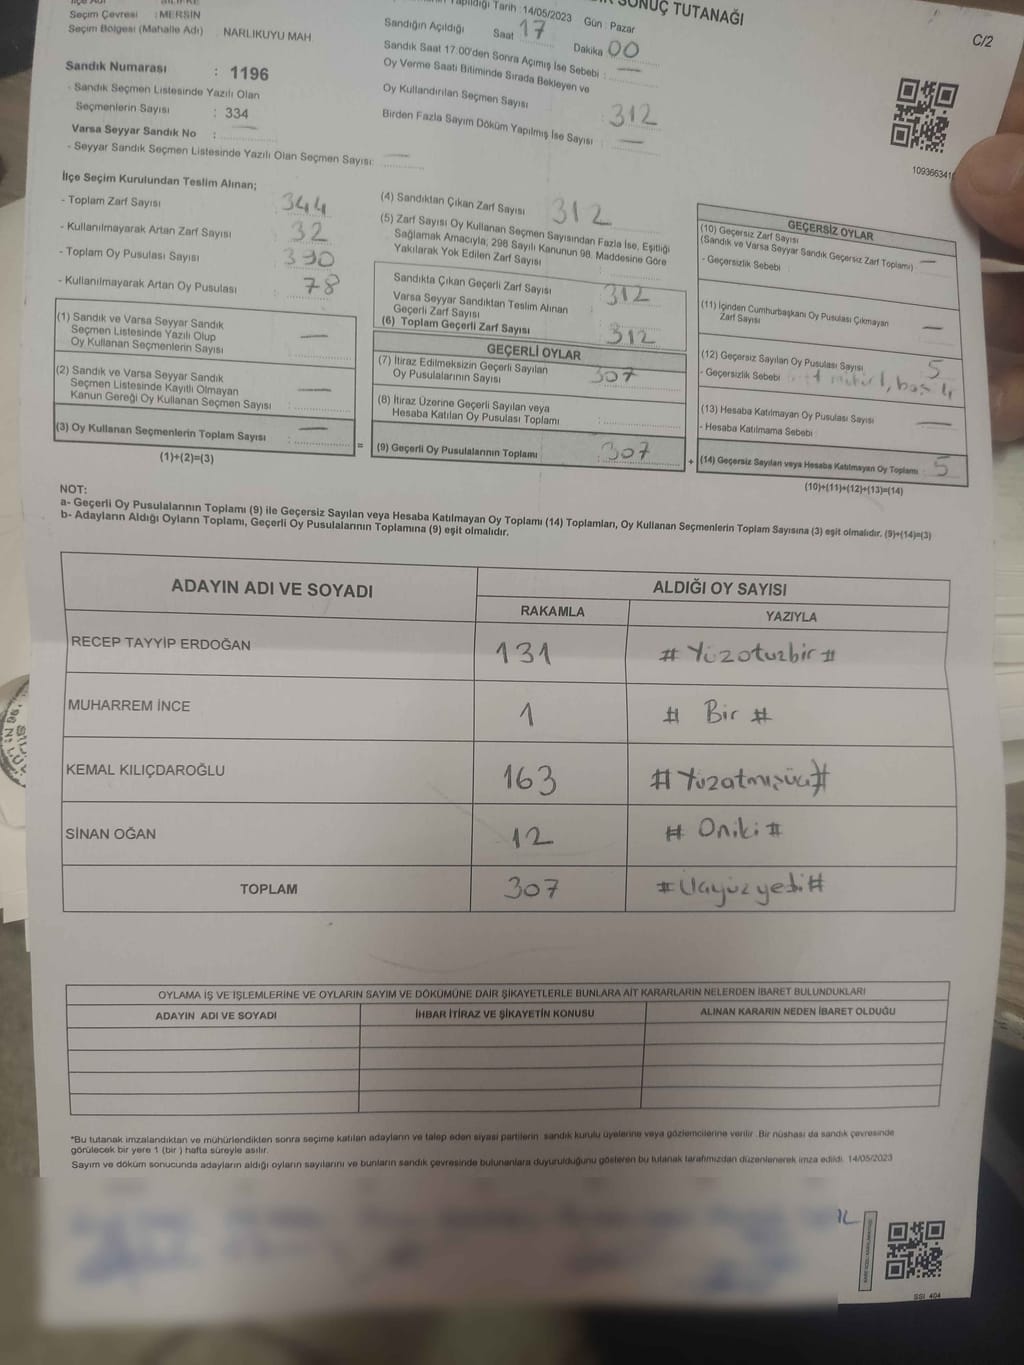 SONUÇ TUTANAĞI
C/2
Seçim Çevresi : MERSİN
Seçim Bölgesi (Mahalle Adı) : NARLIKUYU MAH.
Sandık Numarası : 1196
- Sandık Seçmen Listesinde Yazılı Olan
Seçmenlerin Sayısı : 334
Varsa Seyyar Sandık No :
- Seyyar Sandık Seçmen Listesinde Yazılı Olan Seçmen Sayısı: —
Yapıldığı Tarih :14/05/2023 Gün : Pazar
Sandığın Açıldığı Saat 17 Dakika 00
Sandık Saat 17:00'den Sonra Açımış İse Sebebi : —
Oy Verme Saati Bitiminde Sırada Bekleyen ve
Oy Kullandırılan Seçmen Sayısı : 312
Birden Fazla Sayım Döküm Yapılmış İse Sayısı : —
109366341
İlçe Seçim Kurulundan Teslim Alınan;
- Toplam Zarf Sayısı : 344
- Kullanılmayarak Artan Zarf Sayısı : 32
- Toplam Oy Pusulası Sayısı : 390
- Kullanılmayarak Artan Oy Pusulası : 78
(1) Sandık ve Varsa Seyyar Sandık
Seçmen Listesinde Yazılı Olup
Oy Kullanan Seçmenlerin Sayısı : —
(2) Sandık ve Varsa Seyyar Sandık
Seçmen Listesinde Kayıtlı Olmayan
Kanun Gereği Oy Kullanan Seçmen Sayısı : —
(3) Oy Kullanan Seçmenlerin Toplam Sayısı : —
(1)+(2)=(3)
=
(4) Sandıktan Çıkan Zarf Sayısı 312
(5) Zarf Sayısı Oy Kullanan Seçmen Sayısından Fazla İse, Eşitliği
Sağlamak Amacıyla; 298 Sayılı Kanunun 98. Maddesine Göre
Yakılarak Yok Edilen Zarf Sayısı :
Sandıkta Çıkan Geçerli Zarf Sayısı 312
Varsa Seyyar Sandıktan Teslim Alınan
Geçerli Zarf Sayısı
(6) Toplam Geçerli Zarf Sayısı 312
GEÇERLİ OYLAR
(7) İtiraz Edilmeksizin Geçerli Sayılan
Oy Pusulalarının Sayısı 307
(8) İtiraz Üzerine Geçerli Sayılan veya
Hesaba Katılan Oy Pusulası Toplamı :
(9) Geçerli Oy Pusulalarının Toplamı : 307
+
GEÇERSİZ OYLAR
(10) Geçersiz Zarf Sayısı
(Sandık ve Varsa Seyyar Sandık Geçersiz Zarf Toplamı) —
- Geçersizlik Sebebi :
(11) İçinden Cumhurbaşkanı Oy Pusulası Çıkmayan
Zarf Sayısı —
(12) Geçersiz Sayılan Oy Pusulası Sayısı 5
- Geçersizlik Sebebi
(13) Hesaba Katılmayan Oy Pusulası Sayısı —
- Hesaba Katılmama Sebebi
(14) Geçersiz Sayılan veya Hesaba Katılmayan Oy Toplamı : 5
(10)+(11)+(12)+(13)=(14)
NOT:
a- Geçerli Oy Pusulalarının Toplamı (9) ile Geçersiz Sayılan veya Hesaba Katılmayan Oy Toplamı (14) Toplamları, Oy Kullanan Seçmenlerin Toplam Sayısına (3) eşit olmalıdır. (9)+(14)=(3)
b- Adayların Aldığı Oyların Toplamı, Geçerli Oy Pusulalarının Toplamına (9) eşit olmalıdır.
ADAYIN ADI VE SOYADI
ALDIĞI OY SAYISI
RAKAMLA YAZIYLA
RECEP TAYYİP ERDOĞAN 131 # Yüzotuzbir #
MUHARREM İNCE 1 # Bir #
KEMAL KILIÇDAROĞLU 163 # Yüzatmışüç #
SİNAN OĞAN 12 # Oniki #
TOPLAM 307 # Üçyüzyedi #
OYLAMA İŞ VE İŞLEMLERİNE VE OYLARIN SAYIM VE DÖKÜMÜNE DAİR ŞİKAYETLERLE BUNLARA AİT KARARLARIN NELERDEN İBARET BULUNDUKLARI
ADAYIN ADI VE SOYADI İHBAR İTİRAZ VE ŞİKAYETİN KONUSU ALINAN KARARIN NEDEN İBARET OLDUĞU
*Bu tutanak imzalandıktan ve mühürlendikten sonra seçime katılan adayların ve talep eden siyasi partilerin sandık kurulu üyelerine veya gözlemcilerine verilir. Bir nüshası da sandık çevresinde
görülecek bir yere 1 (bir ) hafta süreyle asılır.
Sayım ve döküm sonucunda adayların aldığı oyların sayılarını ve bunların sandık çevresinde bulunanlara duyurulduğunu gösteren bu tutanak tarafımızdan düzenlenerek imza edildi. 14/05/2023
SSI 404